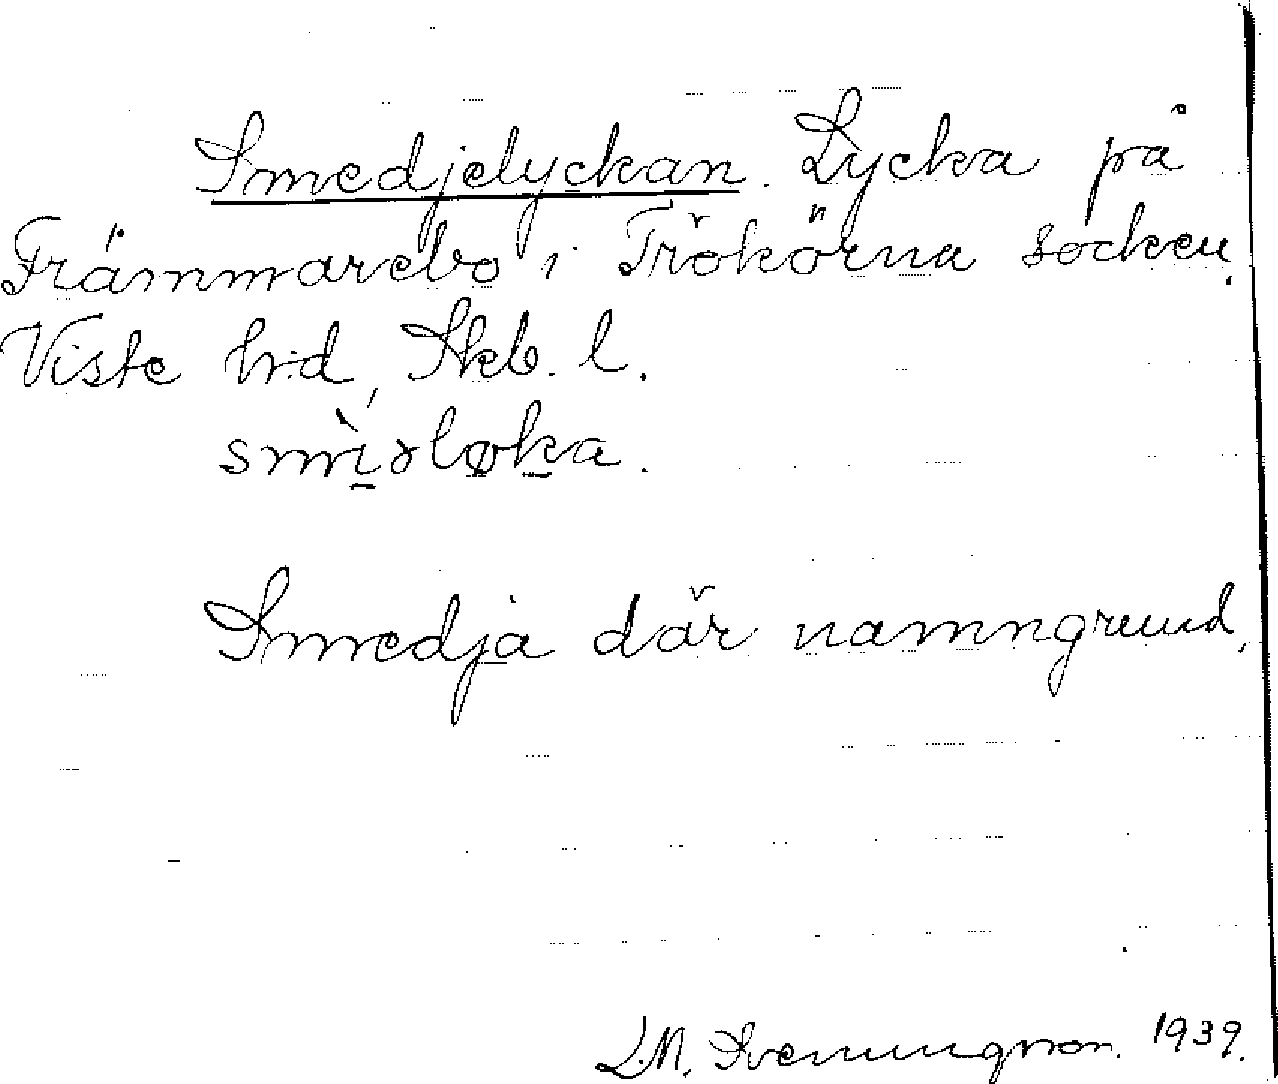 Smedjelyckan. Lycka på
Främmarebo i Trökörna socken.
Viste hd, Skb. l.
smìsløka.
Smedja där namngrund,
L.M. Svenungsson. 1939.